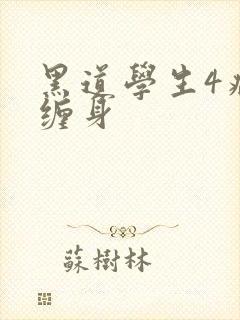 黑道學生4
缠身
蘇樹林